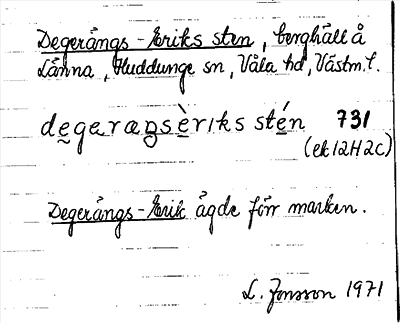 Degerängs-Eriks sten, berghäll å
Länna, Huddunge sn, Våla hd, Västm.l.
degeræŋsèrıks stén 731
(ek 12H2c)
Degerängs-Erik ägde förr marken.
L. Jonsson 1971